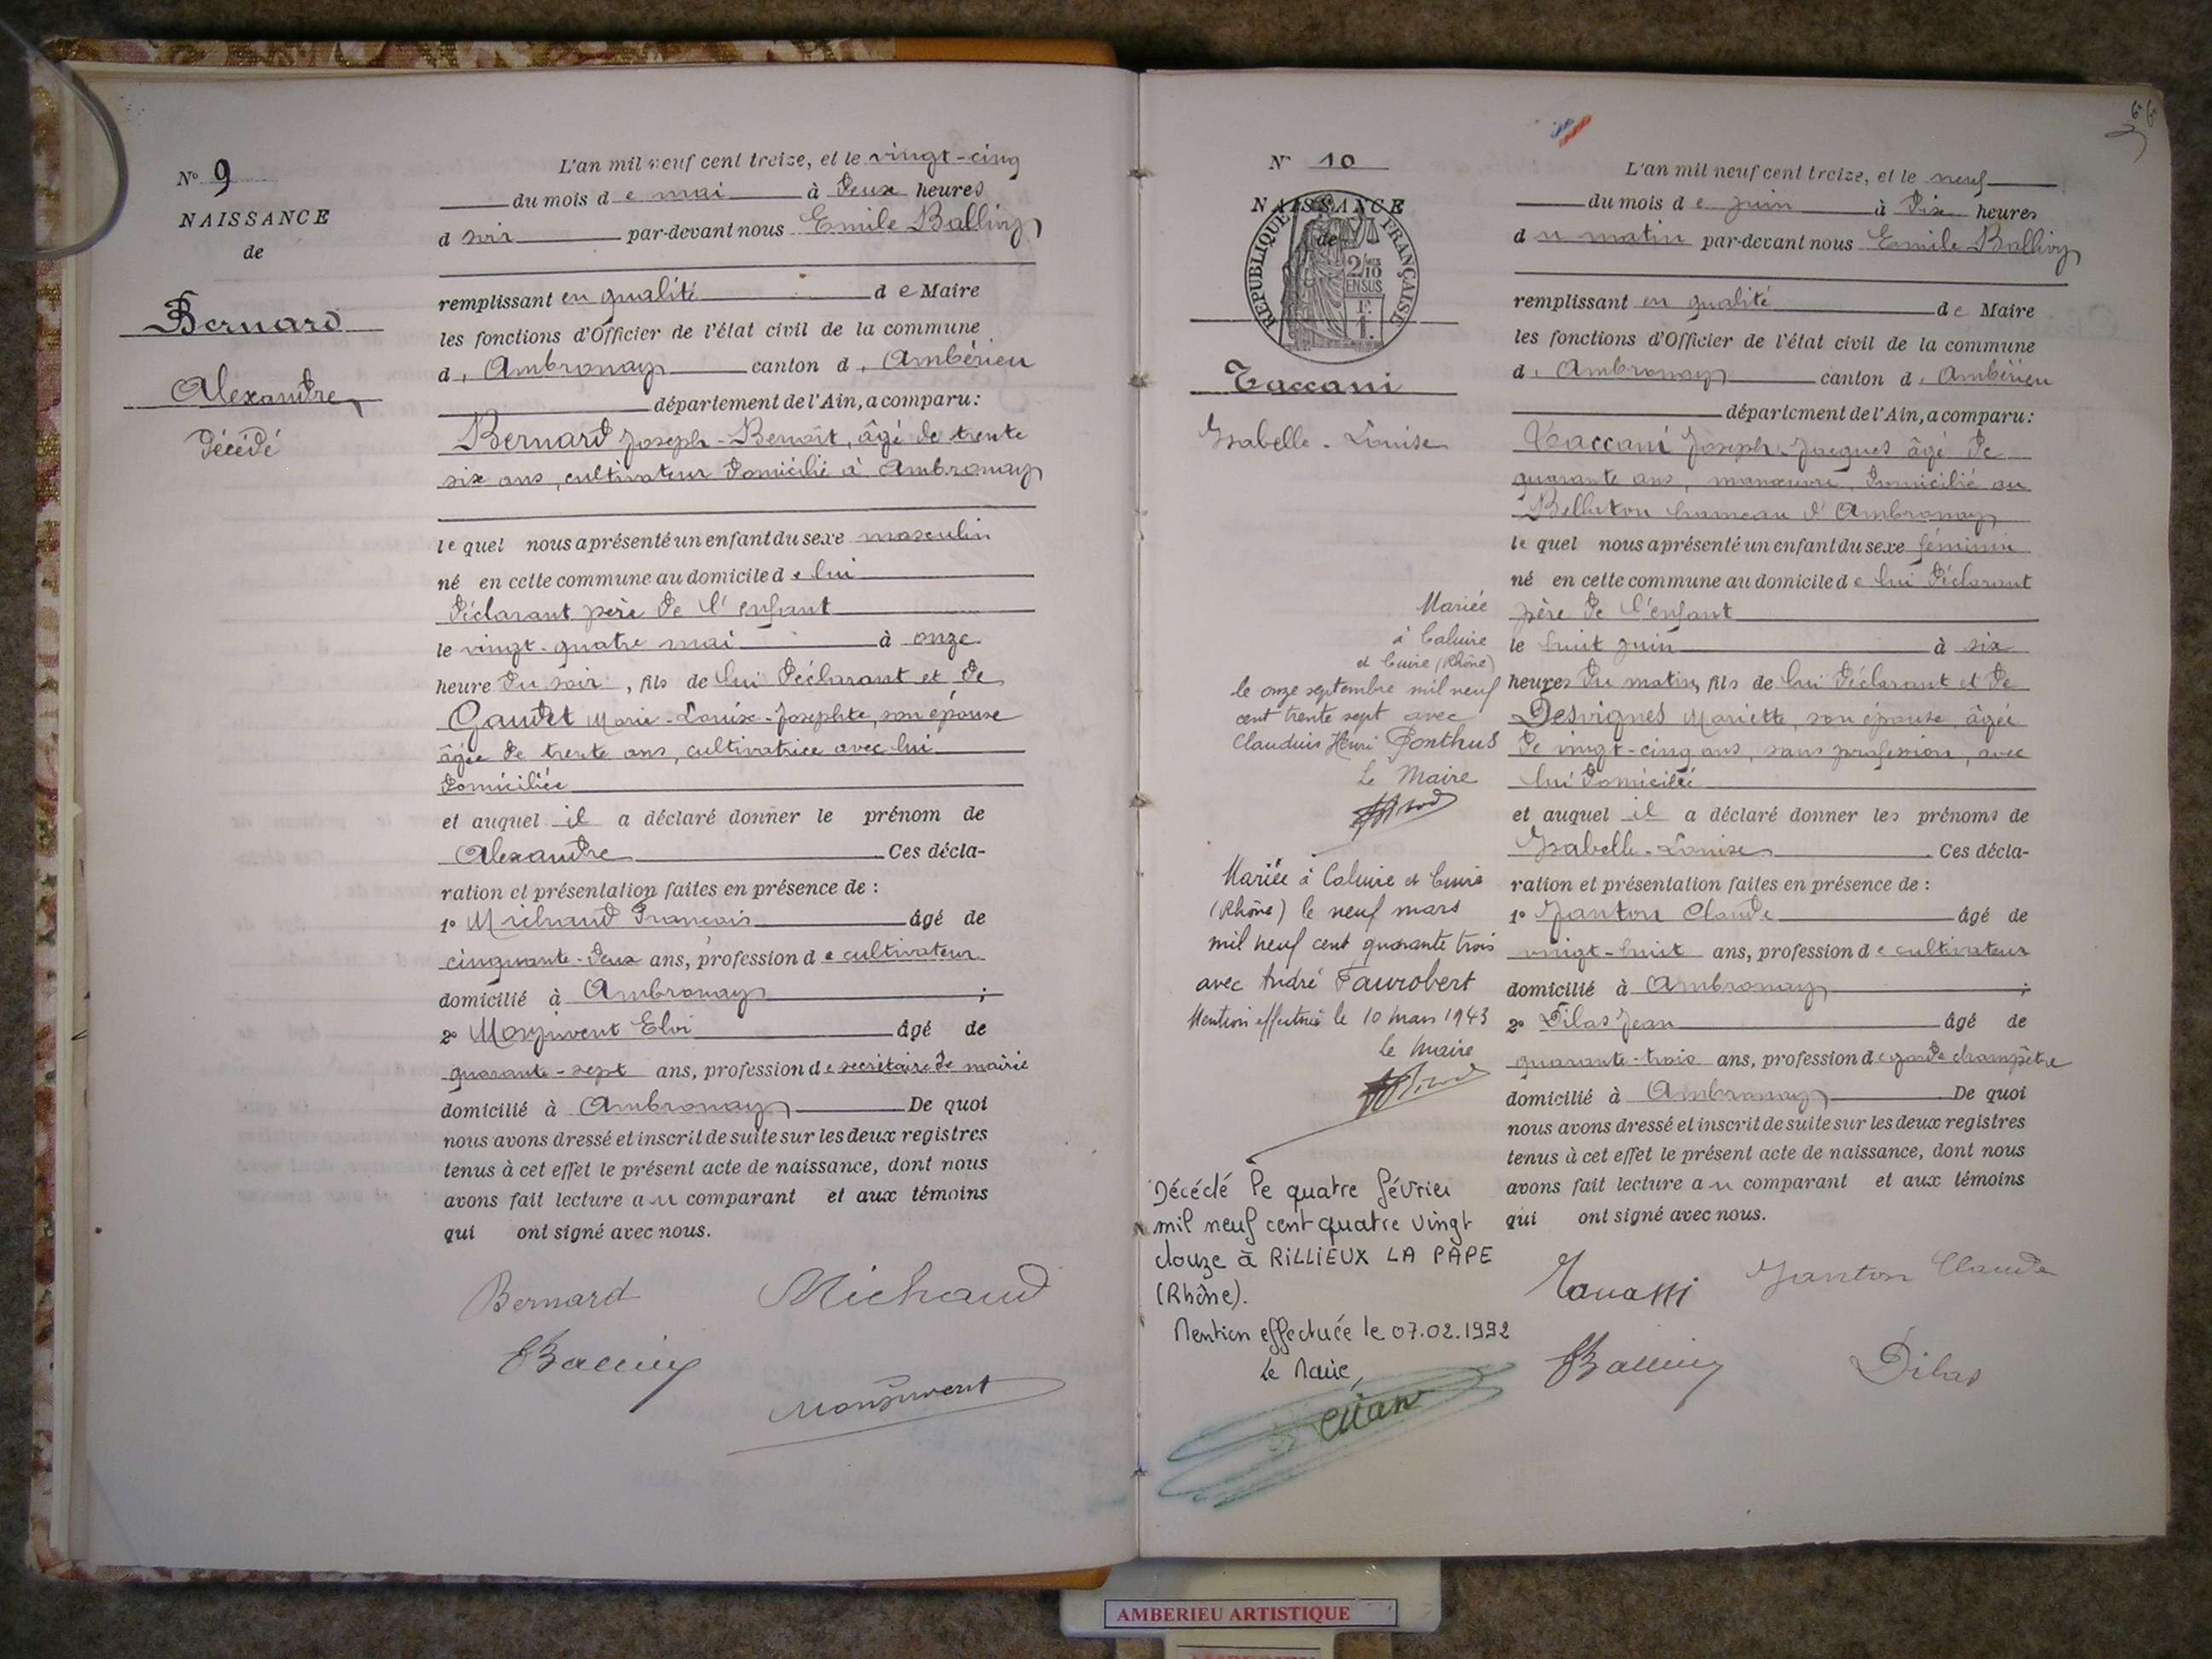 N° 9
NAISSANCE
de
Bernard
Alexandre
Décédé
L'an mil neuf cent treize, et le vingt-cinq
du mois de mai à deux heures
d soir par-devant nous Emile Ballivy
remplissant en qualité de Maire
les fonctions d'Officier de l'état civil de la commune
d'Ambronay canton d'Ambérieu
département de l'Ain, a comparu :
Bernard Joseph-Benoît, âgé de trente
six ans, cultivateur domicilié à Ambronay
lequel nous a présenté un enfant du sexe masculin
né en cette commune au domicile de lui
déclarant père de l'enfant
le vingt-quatre mai à onze
heure du soir, fils de lui déclarant et de
Gaudet Marie-Louise-Josephte, son épouse
âgée de trente ans, cultivatrice avec lui
domiciliée
et auquel il a déclaré donner le prénom de
Alexandre Ces décla-
ration et présentation faites en présence de :
1° Michaud François âgé de
cinquante-deux ans, profession de cultivateur
domicilié à Ambronay ;
2° Monjuvent Eloi âgé de
quarante-sept ans, profession de secrétaire de mairie
domicilié à Ambronay De quoi
nous avons dressé et inscrit de suite sur les deux registres
tenus à cet effet le présent acte de naissance, dont nous
avons fait lecture au comparant et aux témoins
qui ont signé avec nous.
Bernard Michaud
EBallivy
Monjuvent
N° 10
NAISSANCE
de
RÉPUBLIQUE FRANÇAISE
2/10
EN SUS
Taccani
Isabelle-Louise
Mariée
à Caluire
et Cuire (Rhône)
le onze septembre mil neuf
cent trente sept avec
Claudius Henri Ponthus
Le Maire
Mariée à Caluire et Cuire
(Rhône) le neuf mars
mil neuf cent quarante trois
avec André Faurobert
Mention effectuée le 10 mars 1943
le maire
Décédé le quatre février
mil neuf cent quatre vingt
douze à RILLIEUX LA PAPE
(Rhône).
Mention effectuée le 07.02.1992
Le Maire,
L'an mil neuf cent treize, et le neuf
du mois de juin à dix heures
du matin par-devant nous Emile Ballivy
remplissant en qualité de Maire
les fonctions d'Officier de l'état civil de la commune
d'Ambronay canton d'Ambérieu
département de l'Ain, a comparu :
Taccani Joseph-Jacques âgé de
quarante ans, manœuvre, domicilié au
Belluton hameau d'Ambronay
lequel nous a présenté un enfant du sexe féminin
né en cette commune au domicile de lui déclarant
père de l'enfant
le huit juin à six
heures du matin, fils de lui déclarant et de
Desvignes Mariette, son épouse, âgée
de vingt-cinq ans, sans profession, avec
lui domiciliée
et auquel il a déclaré donner les prénoms de
Isabelle-Louise. Ces décla-
ration et présentation faites en présence de :
1° Janton Claude âgé de
vingt-huit ans, profession de cultivateur
domicilié à Ambronay ;
2° Dilas Jean âgé de
quarante-trois ans, profession de garde champêtre
domicilié à Ambronay De quoi
nous avons dressé et inscrit de suite sur les deux registres
tenus à cet effet le présent acte de naissance, dont nous
avons fait lecture au comparant et aux témoins
qui ont signé avec nous.
Janton Claude
EBallivy Dilas
AMBERIEU ARTISTIQUE